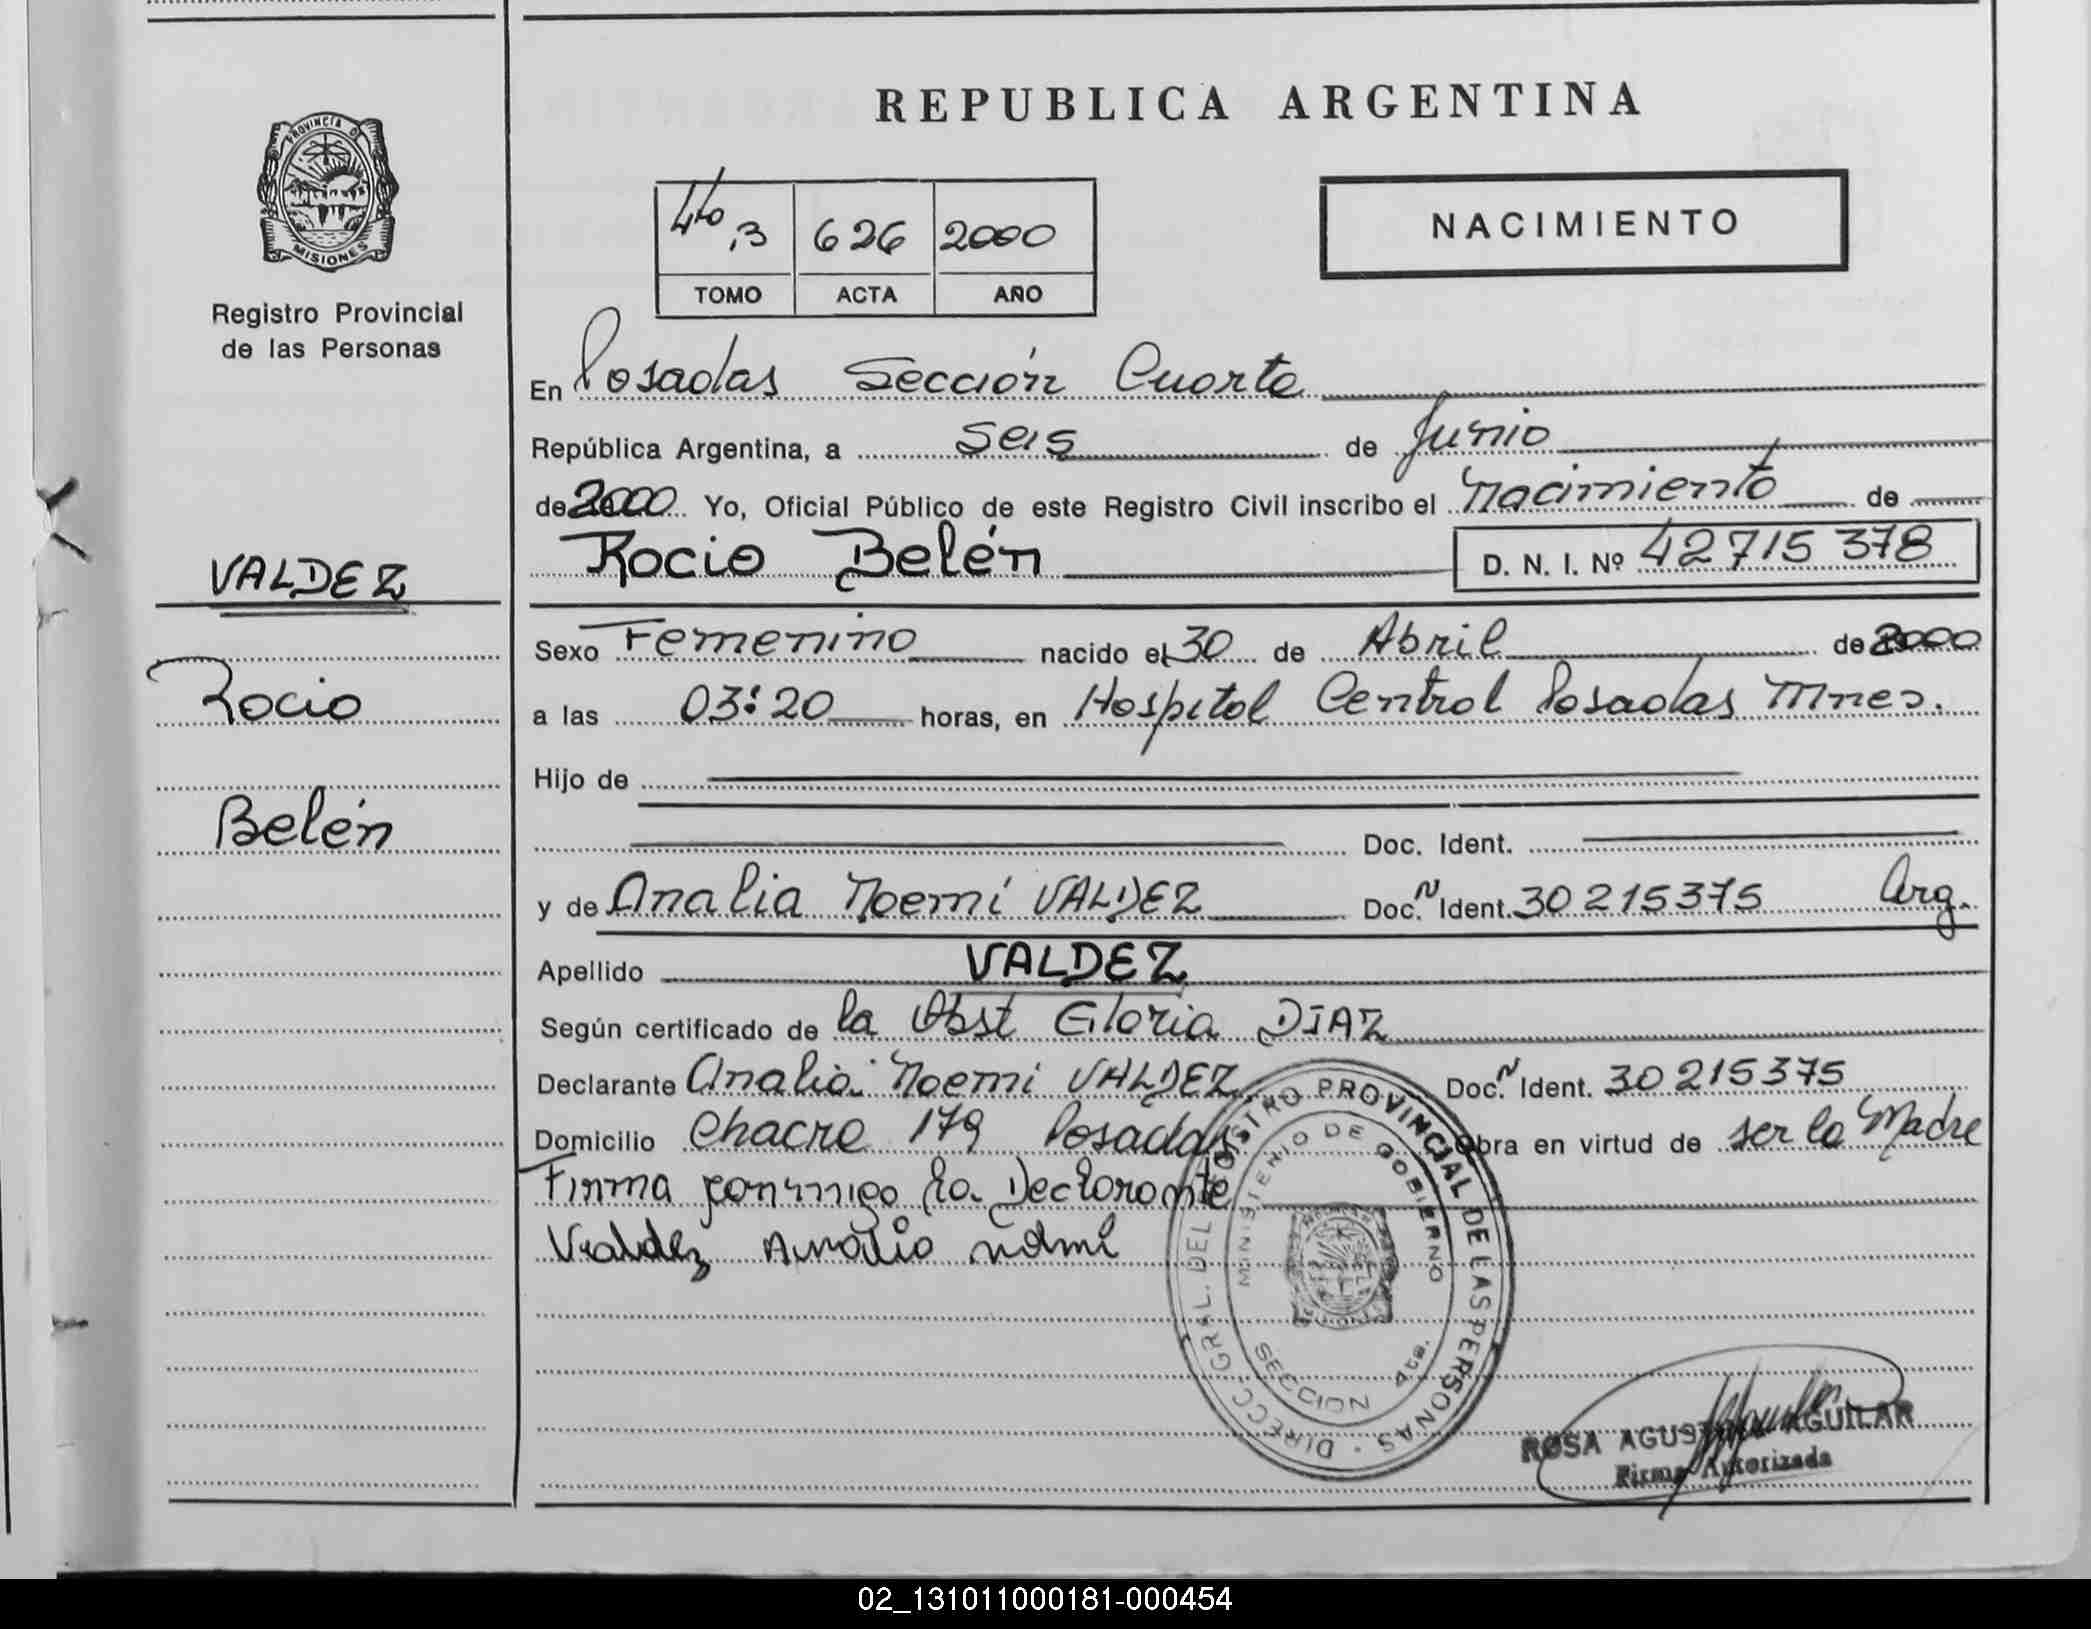 REPUBLICA ARGENTINA
PROVINCIA D
MISIONES
Registro Provincial
de las Personas
4to, 3 626 2000
TOMO ACTA AÑO
NACIMIENTO
En Posadas Sección Cuarta
República Argentina, a Seis de Junio
de 2000 Yo, Oficial Público de este Registro Civil inscribo el Nacimiento de
Rocio Belén D. N. I. Nº 42715378
VALDEZ
Rocio
Belén
Sexo Femenino nacido el 30 de Abril de 2000
a las 03:20 horas, en Hospital Central Posadas Mnes.
Hijo de
Doc. Ident.
y de Analia Noemí VALDEZ Doc. N Ident. 30215375 Arg.
Apellido VALDEZ
Según certificado de la Obst Gloria DIAZ
Declarante Analia Noemi VALDEZ Doc. N Ident. 30215375
Domicilio Chacra 179 Posadas Obra en virtud de ser la Madre
Firma conmigo la Declarante
Valdez Analia
DIRECC. GRAL. DEL REGISTRO PROVINCIAL DE LAS PERSONAS
MINISTERIO DE GOBIERNO
SECCION 4ta.
ROSA AGUSTINA AGUILAR
Firma Autorizada
02_131011000181-000454